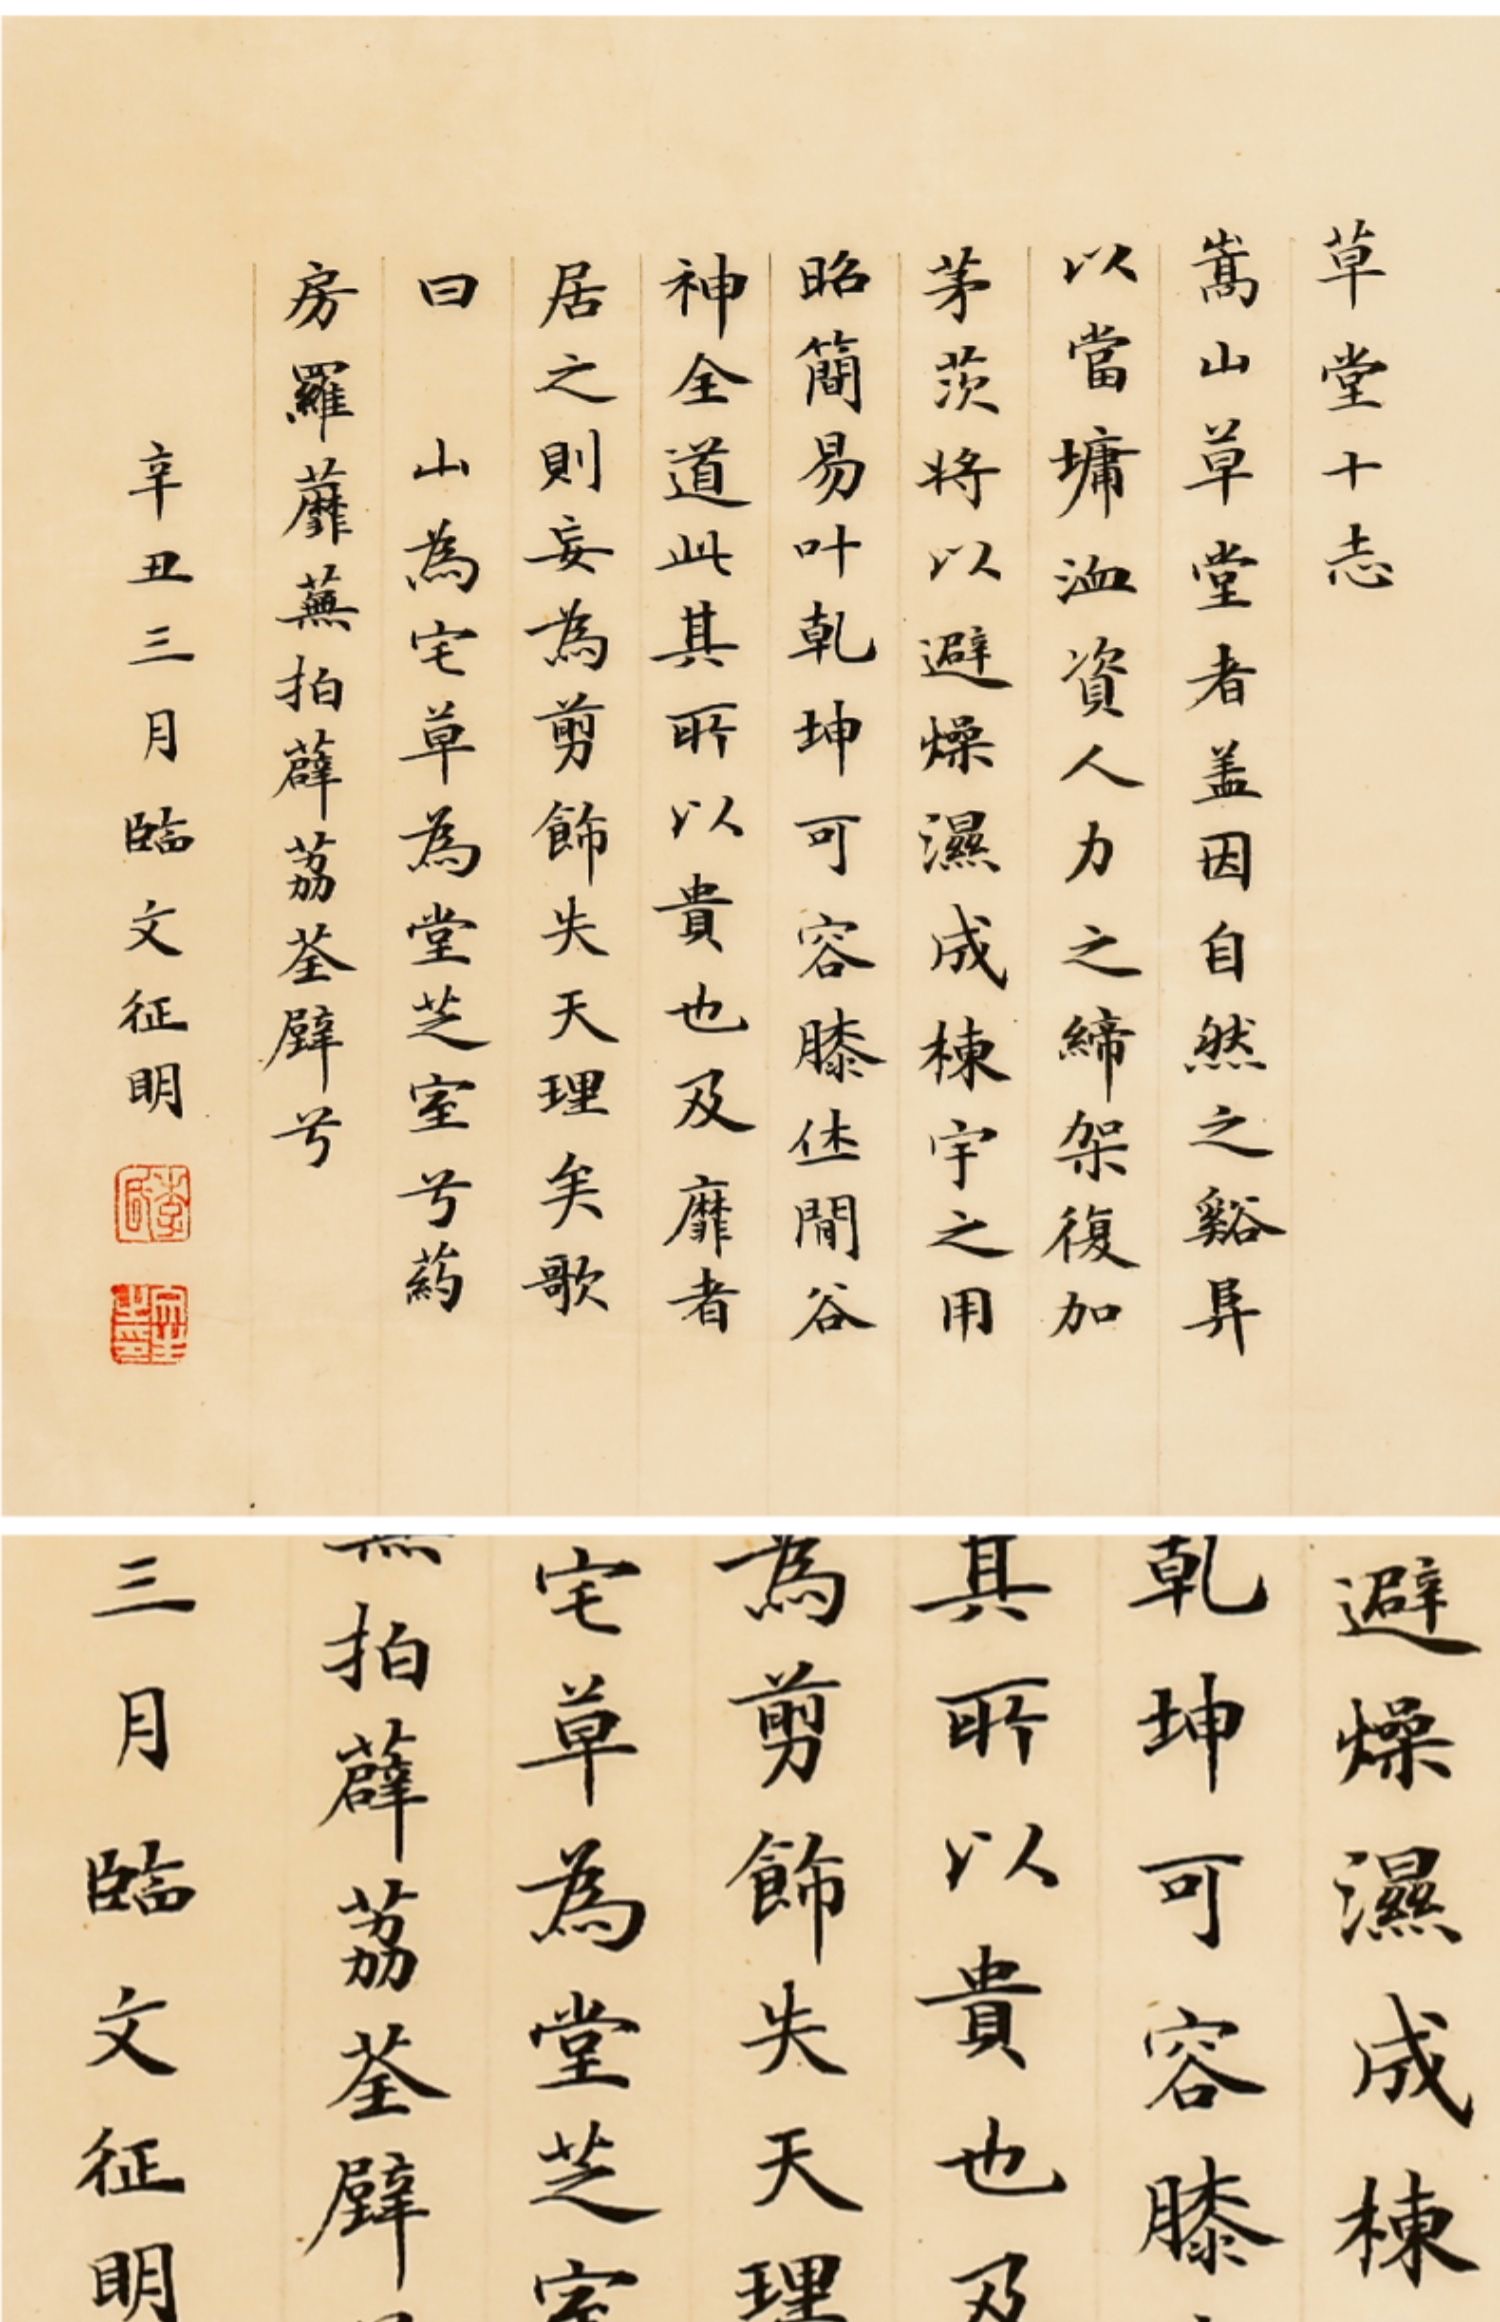 草堂十志
嵩山草堂堂者盖因自然之谿阜
以當墉洫資人力之締架復加
茅茨将以避燥濕成棟宇之用
昭簡易叶乾坤可容膝休閒谷
神全道此其所以貴也及靡者
居之則妄為剪飾失天理矣歌
曰 山為宅草為堂芝室兮药
房羅蘼蕪拍薜荔荃壁兮
辛丑三月臨文征明
避燥濕成棟
乾坤可容膝
其所以貴也及
為剪飾失天理
宅草為堂芝室
蕪拍薜荔荃壁
三月臨文征明